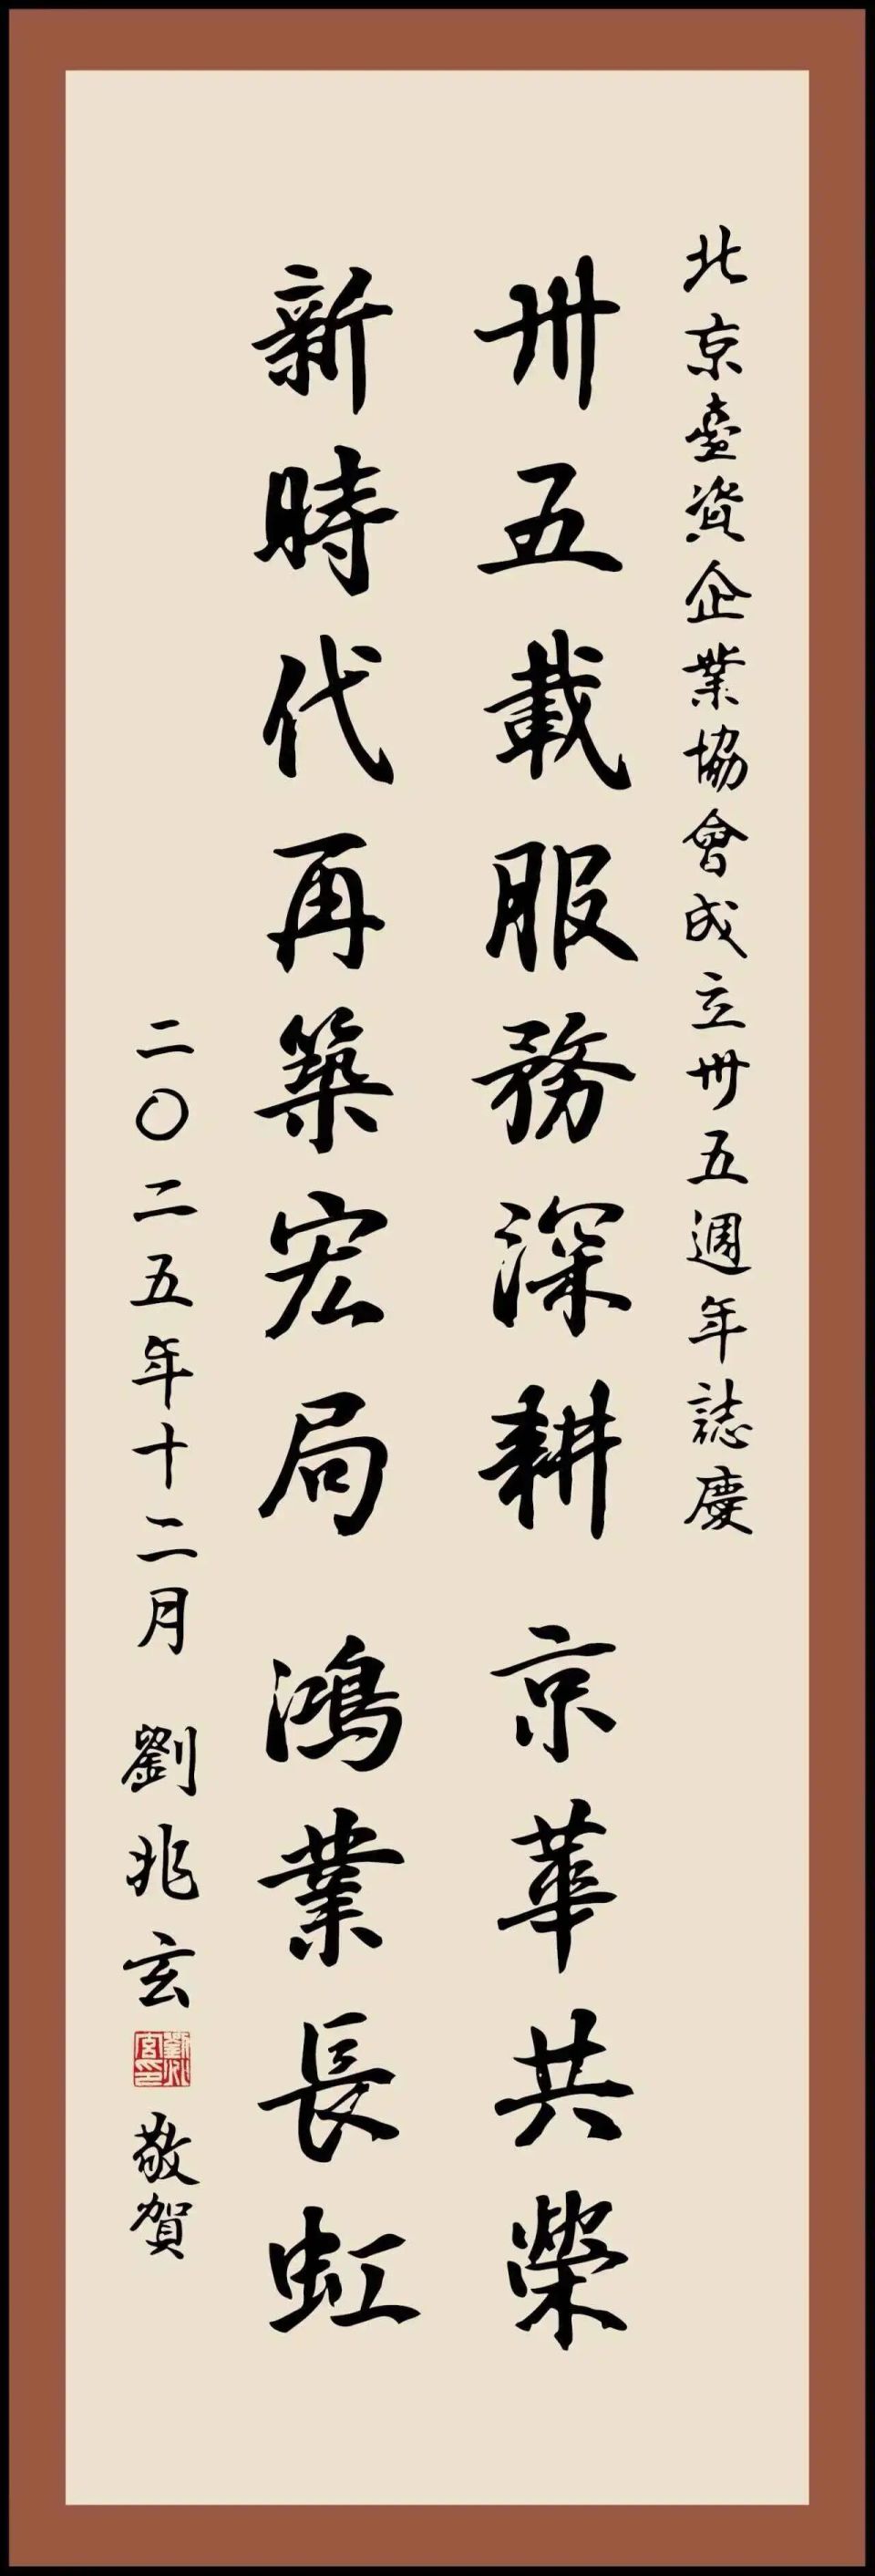 北京臺資企業協會成立卅五週年誌慶
卅五載服務深耕 京華共榮
新時代再築宏局 鴻業長虹
二〇二五年十二月 劉兆玄 敬賀